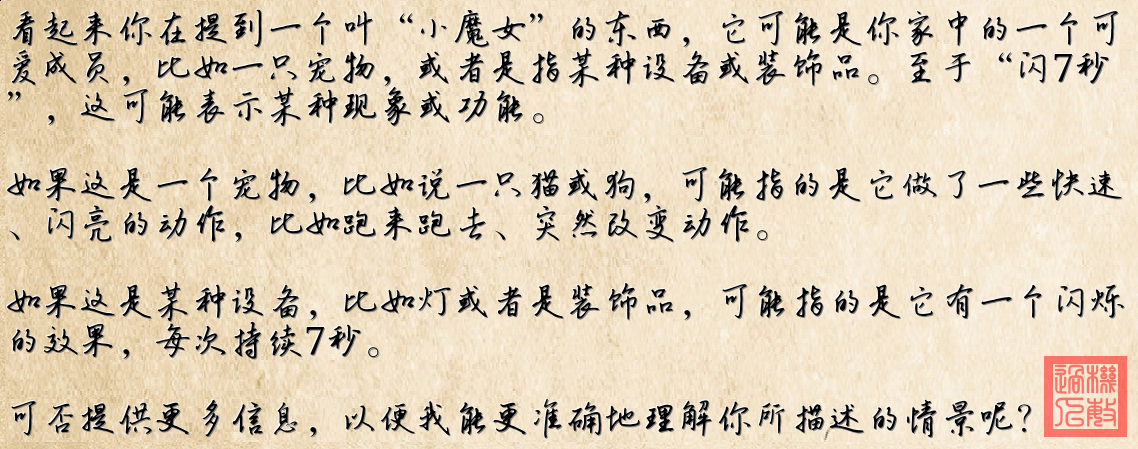 看起来你在提到一个叫“小魔女”的东西，它可能是你家中的一个可
爱成员，比如一只宠物，或者是指某种设备或装饰品。至于“闪7秒
”，这可能表示某种现象或功能。
如果这是一个宠物，比如说一只猫或狗，可能指的是它做了一些快速
、闪亮的动作，比如跑来跑去、突然改变动作。
如果这是某种设备，比如灯或者是装饰品，可能指的是它有一个闪烁
的效果，每次持续7秒。
可否提供更多信息，以便我能更准确地理解你所描述的情景呢？